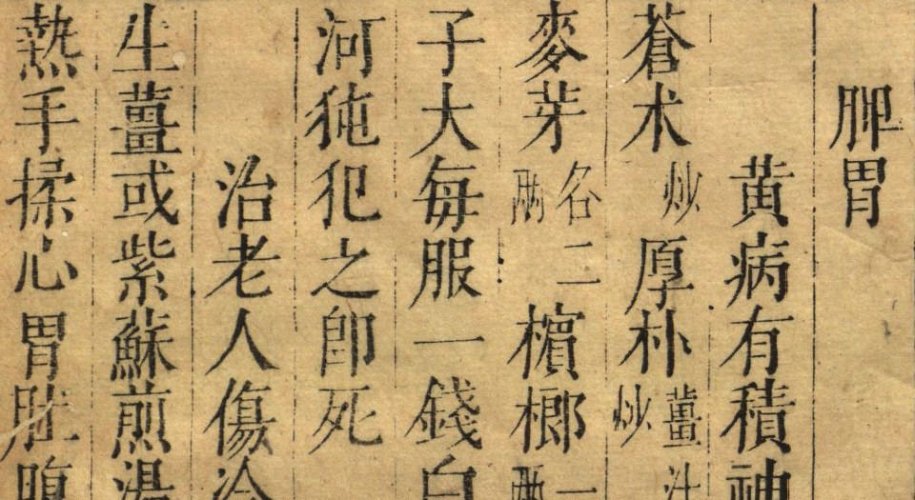 脾胃
黄病有積神
蒼术炒厚朴薑汁炒
麥芽各二兩檳榔一兩
子大每服一錢白
河㹠犯之即死
治老人傷冷
生薑或紫蘇煎湯
熱手揉心胃肚腹